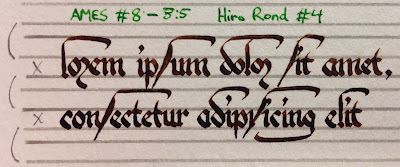 AMES #8 - 3:5 Hiro Rond #4
x lorem ipsum dolor sit amet,
x consectetur adipisicing elit